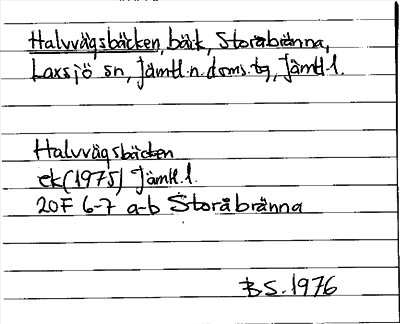 Halvvägsbäcken, bäck, Storåbränna,
Laxsjö sn, Jämtl. n. doms. tg, Jämtl. l.
Halvvägsbäcken
ek (1975) Jämtl. l.
20F 6-7 a-b Storåbränna
B S. 1976